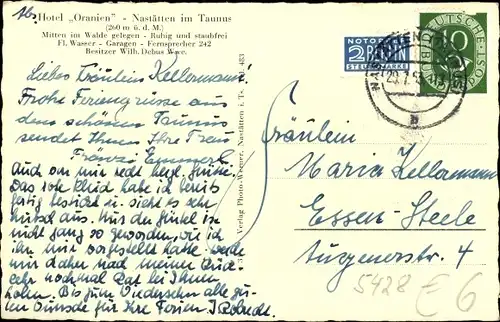 Hotel „Oranien" - Nastätten im Taunus
(260 m ü. d. M.)
Mitten im Walde gelegen - Ruhig und staubfrei
Fl. Wasser - Garagen - Fernsprecher 242
Besitzer Wilh. Debus Wwe.
Liebes Fräulein Kellermann!
Frohe Feriengrüsse aus
dem schönen Taunus
sendet Ihnen Ihre Frau
Auch von mir recht herzl. Grüsse.
Das rote Kleid habe ich bereits
fertig bestickt u. sieht es sehr
hübsch aus. Nur der Gürtel ist
nicht ganz so geworden, wie ich
ihn mir vorgestellt hatte. werde
mir daher nach meiner Rück-
kehr nochmal Rat bei Ihnen
holen. Bis zum Wiedersehen alle gu-
ten Wünsche für Ihre Ferien
Verlag Photo-Werner, Nastätten i. Ts.
483
NOTOPFER
2 BERLIN
STEUERMARKE
DEUTSCHE
10
POST
Fräulein
Maria Kellermann
Essen-Steele
4
5428 E 6